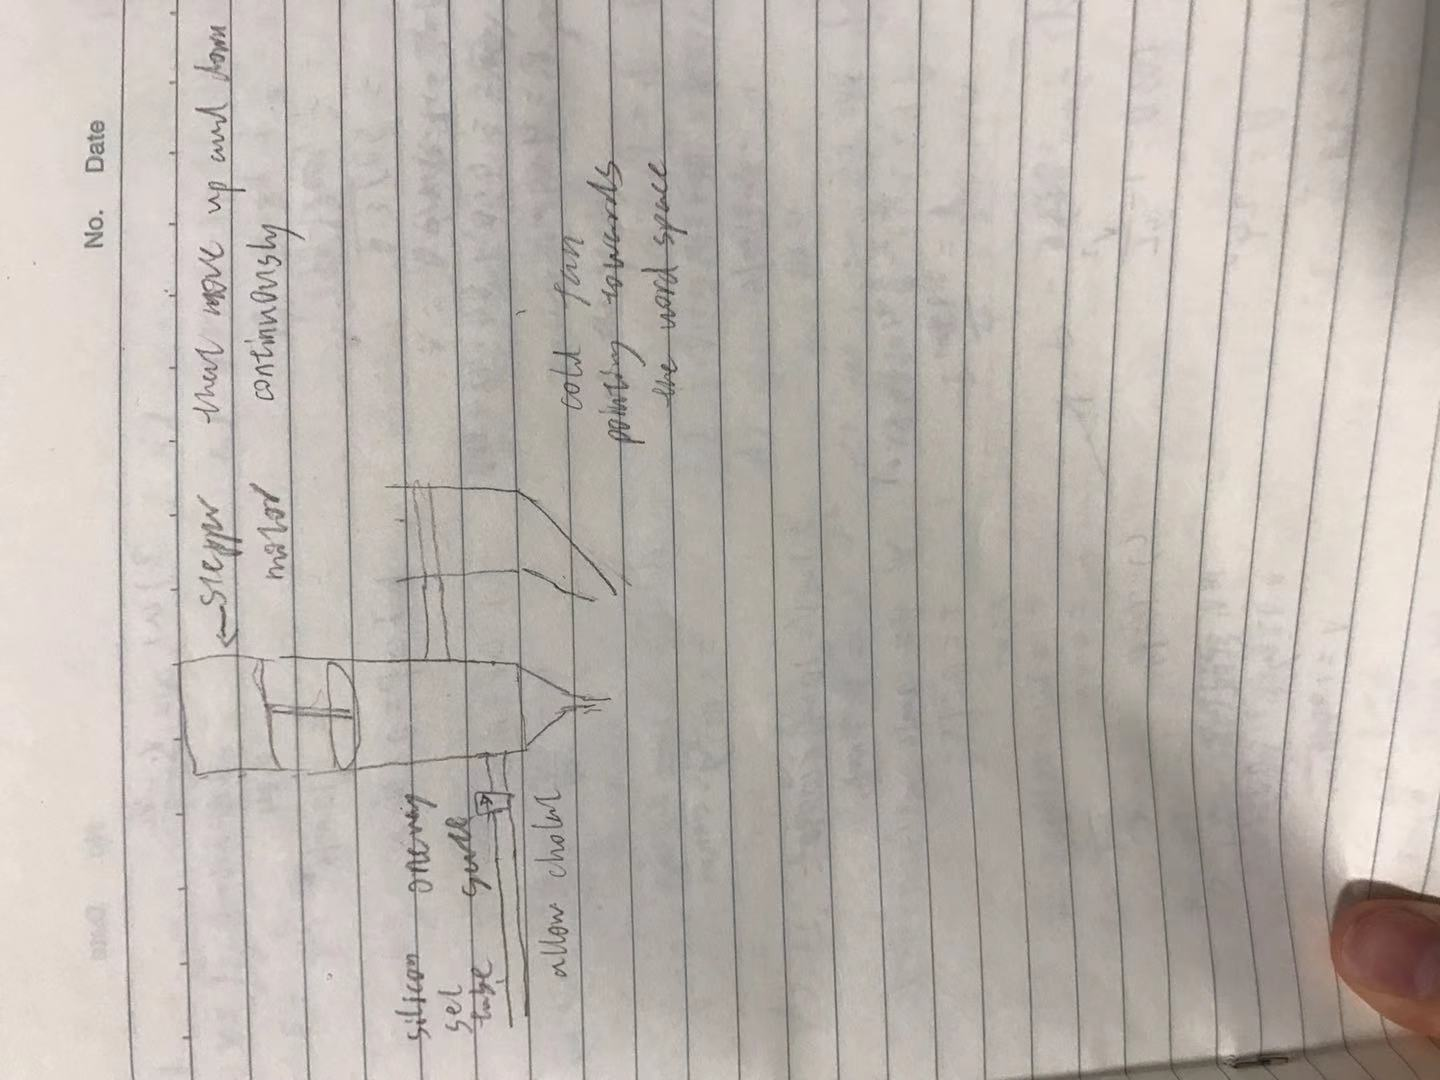 No. Date
stepper that move up and down
motor continuously
silicon oneway
gel
tube
allow
cold fan
pointing towards
the word space